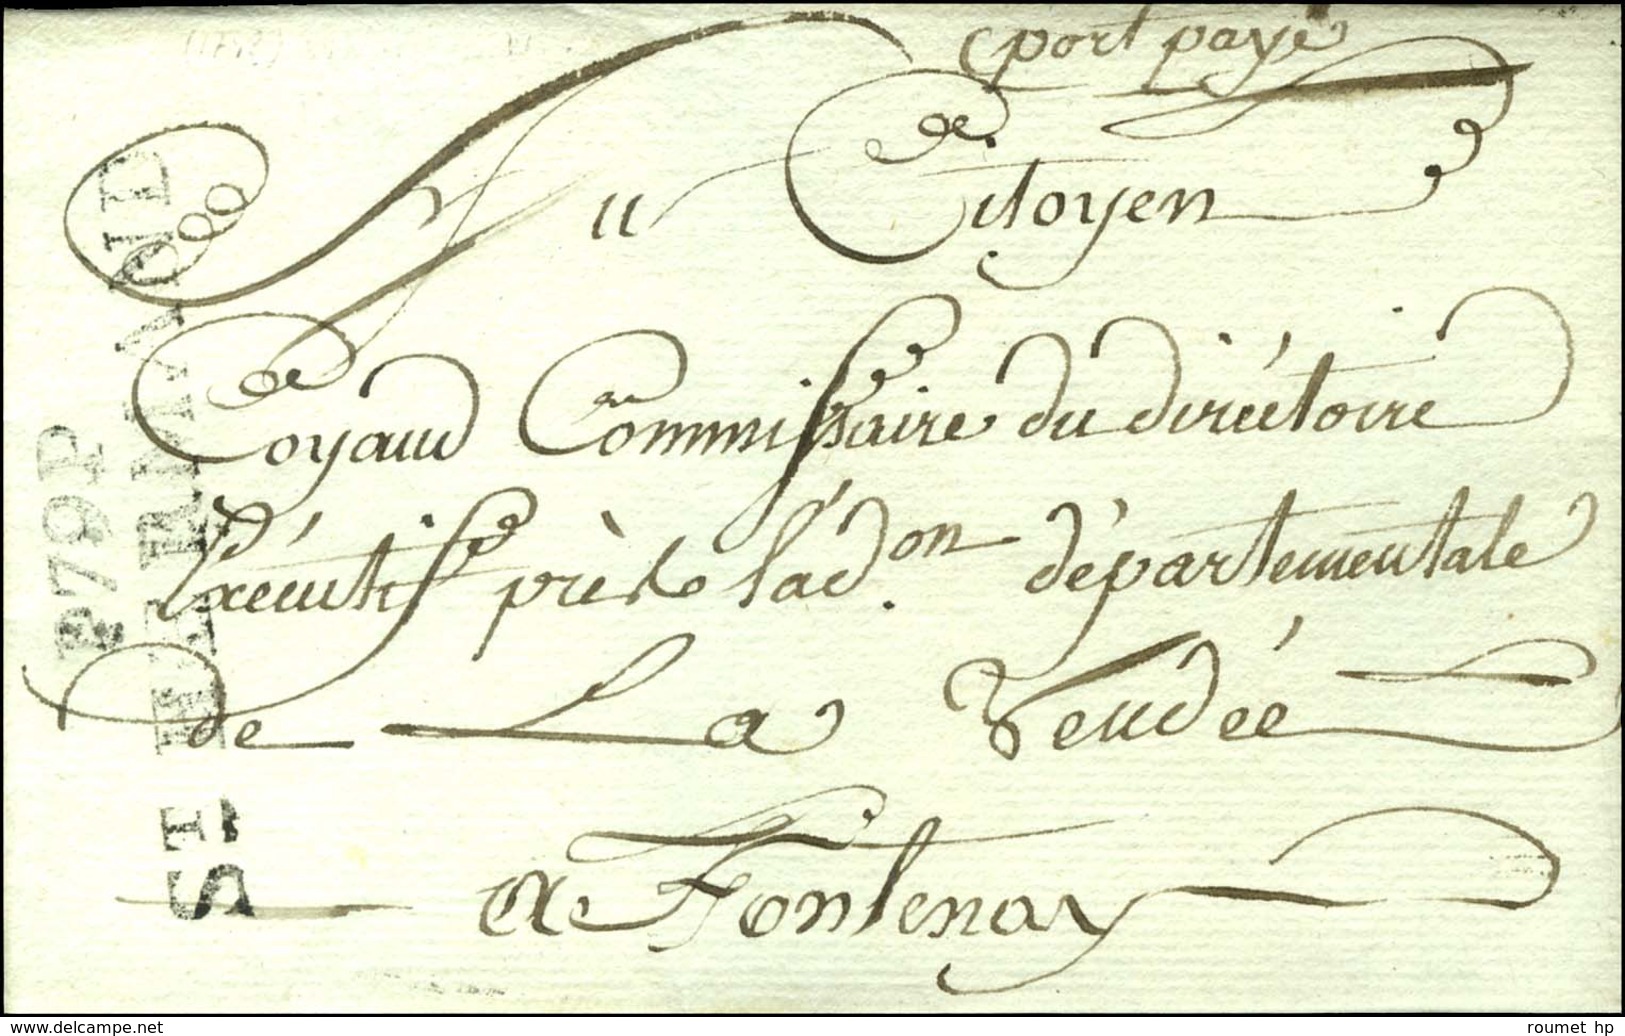 port payé
Au Citoyen
Coyaud Commissaire du diréctoire
Exécutif près l'ad.on départementale
de La Vendée
a Fontenay
P79P
ST HERMAND
www.delcampe.net
roumet hp